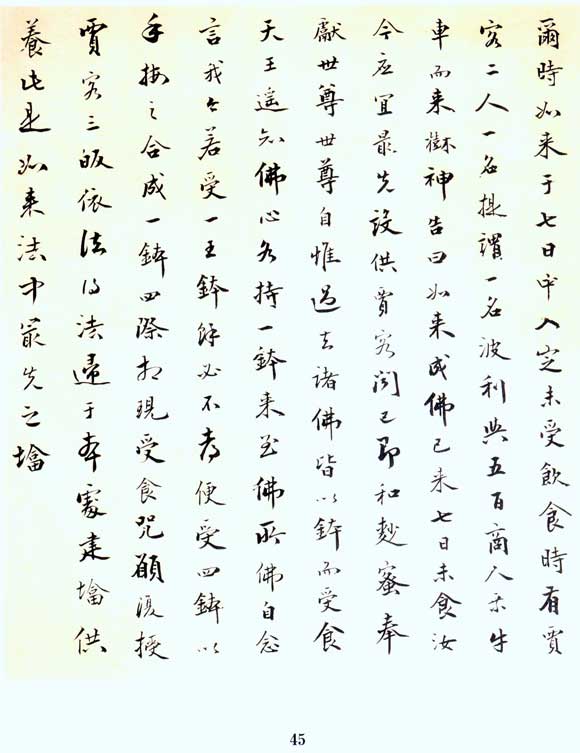 爾時如来于七日中入定未受飲食時有賈
客二人一名提謂一名波利與五百商人乘牛
車而来樹神告曰如来成佛已来七日未食汝
今应宜最先設供賈客聞已即和麨蜜奉
獻世尊世尊自惟過去諸佛皆以鉢而受食
天王遥知佛心各持一鉢来至佛所佛自念
言我今若受一王鉢餘必不便受四鉢以
手按之合成一鉢四際相現受食咒願復授
賈客三皈依法得法還于本處建墖供
養此是如来法中最先之墖
45